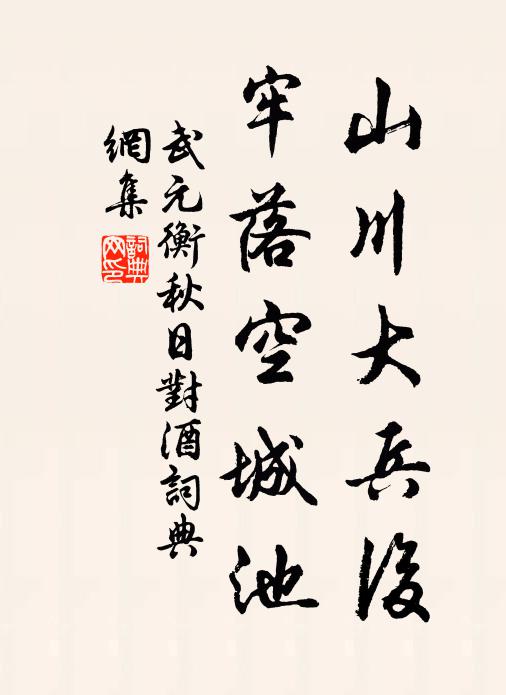 山川大兵後
牢落空城池
武元衡秋日對酒詞典
網集
詞典
网印